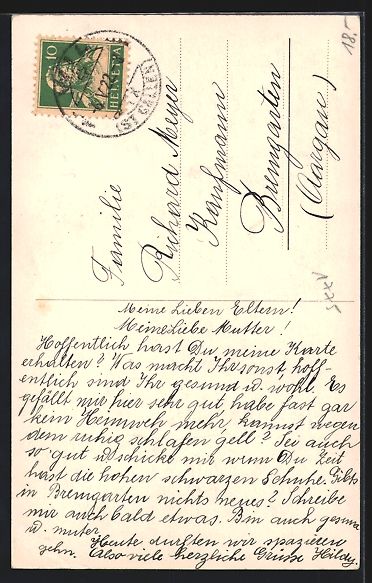 18.-
10
HELVETIA
(ST. GALLEN)
Familie
Richard Meyer
Kaufmann
Bremgarten
(Aargau)
Meine Lieben Eltern!
Meine Liebe Mutter!
Hoffentlich hast Du meine Karte
erhalten? Was macht Ihr sonst, hoff-
entlich sind Ihr gesund u. wohl. Es
gefällt mir hier sehr gut, habe fast gar
kein Heimweh mehr, kannst wegen
dem ruhig schlafen gell? Sei auch
so gut u. schicke mir wenn Du Zeit
hast die hohen schwarzen Schuhe. Gibts
in Bremgarten nichts neues? Schreibe
mir auch bald etwas. Bin auch gesund
u. munter.
Heute durften wir spazieren
gehn. Also viele herzliche Grüsse Hildy.